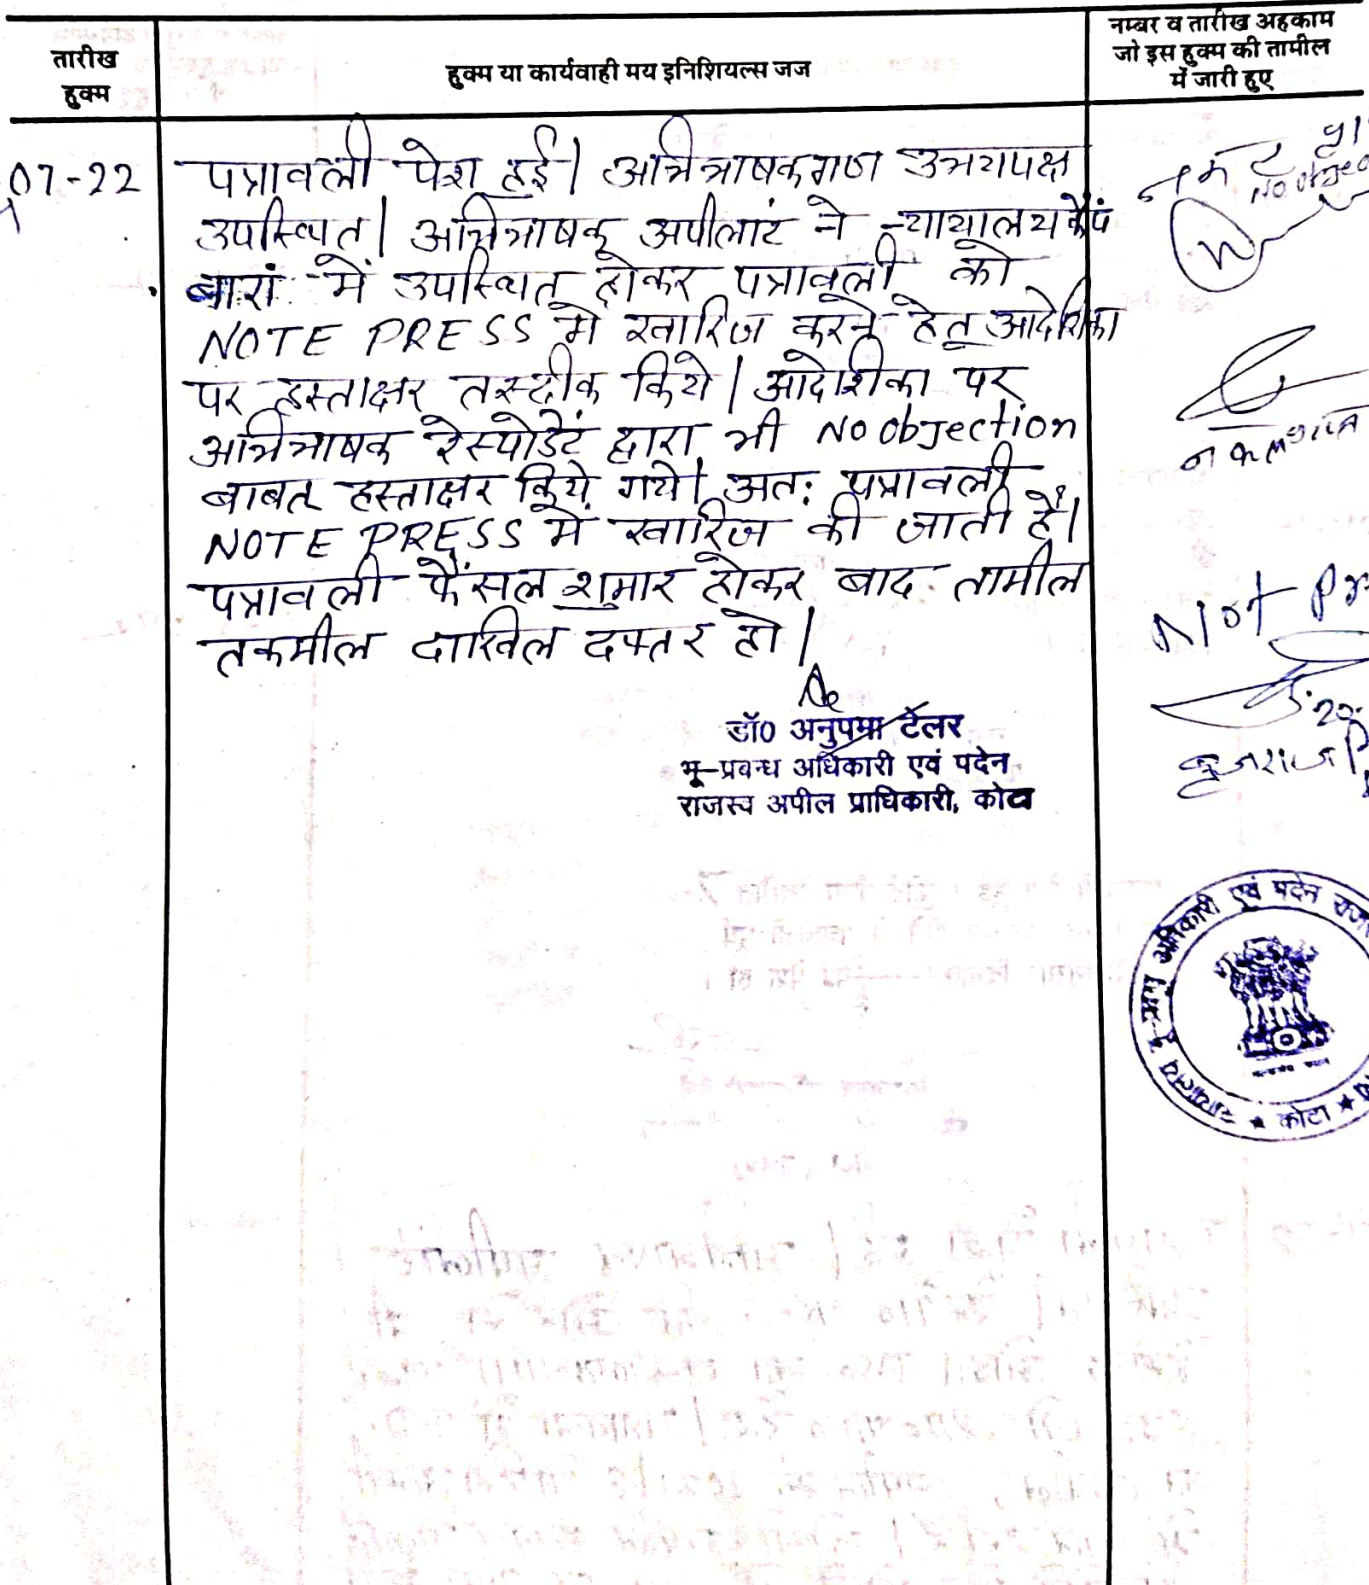 तारीख
हुक्म
हुक्म या कार्यवाही मय इनिशियल्स जज
नम्बर व तारीख अहकाम
जो इस हुक्म की तामील
में जारी हुए
07-22
पत्रावली पेश हुई। अभिभाषकगण उभयपक्ष
उपस्थित। अभिभाषक अपीलांट ने न्यायालय कैंप
बारां में उपस्थित होकर पत्रावली को
NOTE PRESS में खारिज करने हेतू आदेशिका
पर हस्ताक्षर तस्दीक किये। आदेशिका पर
अभिभाषक रेस्पोडेंट द्वारा भी No objection
बाबत हस्ताक्षर किये गये। अतः पत्रावली
NOTE PRESS में खारिज की जाती है।
पत्रावली फैंसल शुमार होकर बाद तामील
तकमील दाखिल दफ्तर हो।
डॉ0 अनुपमा टेलर
भू-प्रबन्ध अधिकारी एवं पदेन
राजस्व अपील प्राधिकारी, कोटा
No objec
Not Pr
अधिकारी एवं पदेन
कोटा